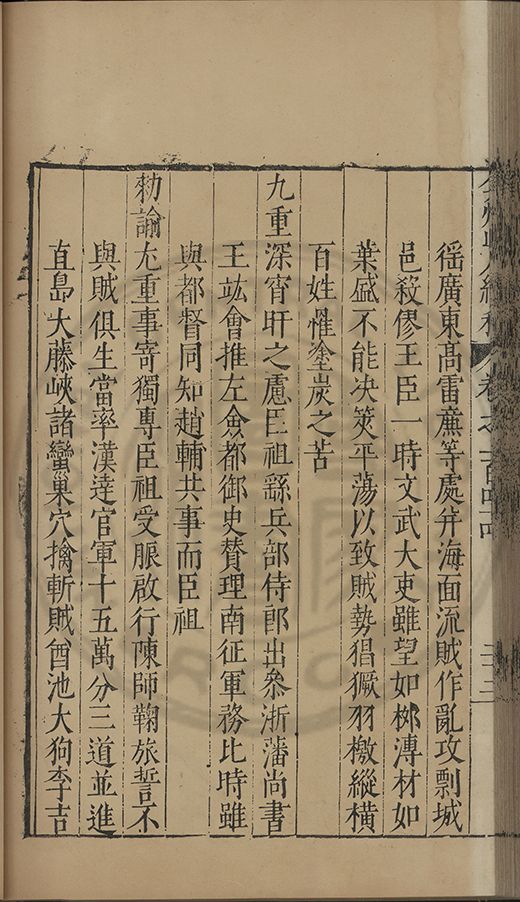 徭廣東髙雷亷等處并海面流賊作亂攻剽城
邑殺僇王臣一時文武大吏雖望如栁溥材如
葉盛不能决筴平蕩以致賊勢猖獗羽檄縱横
百姓罹塗炭之苦
九重深宵旰之慮臣祖繇兵部侍郎出叅浙藩尚書
王竑會推左僉都御史賛理南征軍務比時雖
與都督同知趙輔共事而臣祖
勑諭尤重事寄獨專臣祖受脤啟行陳師鞠旅誓不
與賊俱生當率漢達官軍十五萬分三道並進
直㠀大藤峽諸蠻巢穴擒斬賊酋池大狗李吉